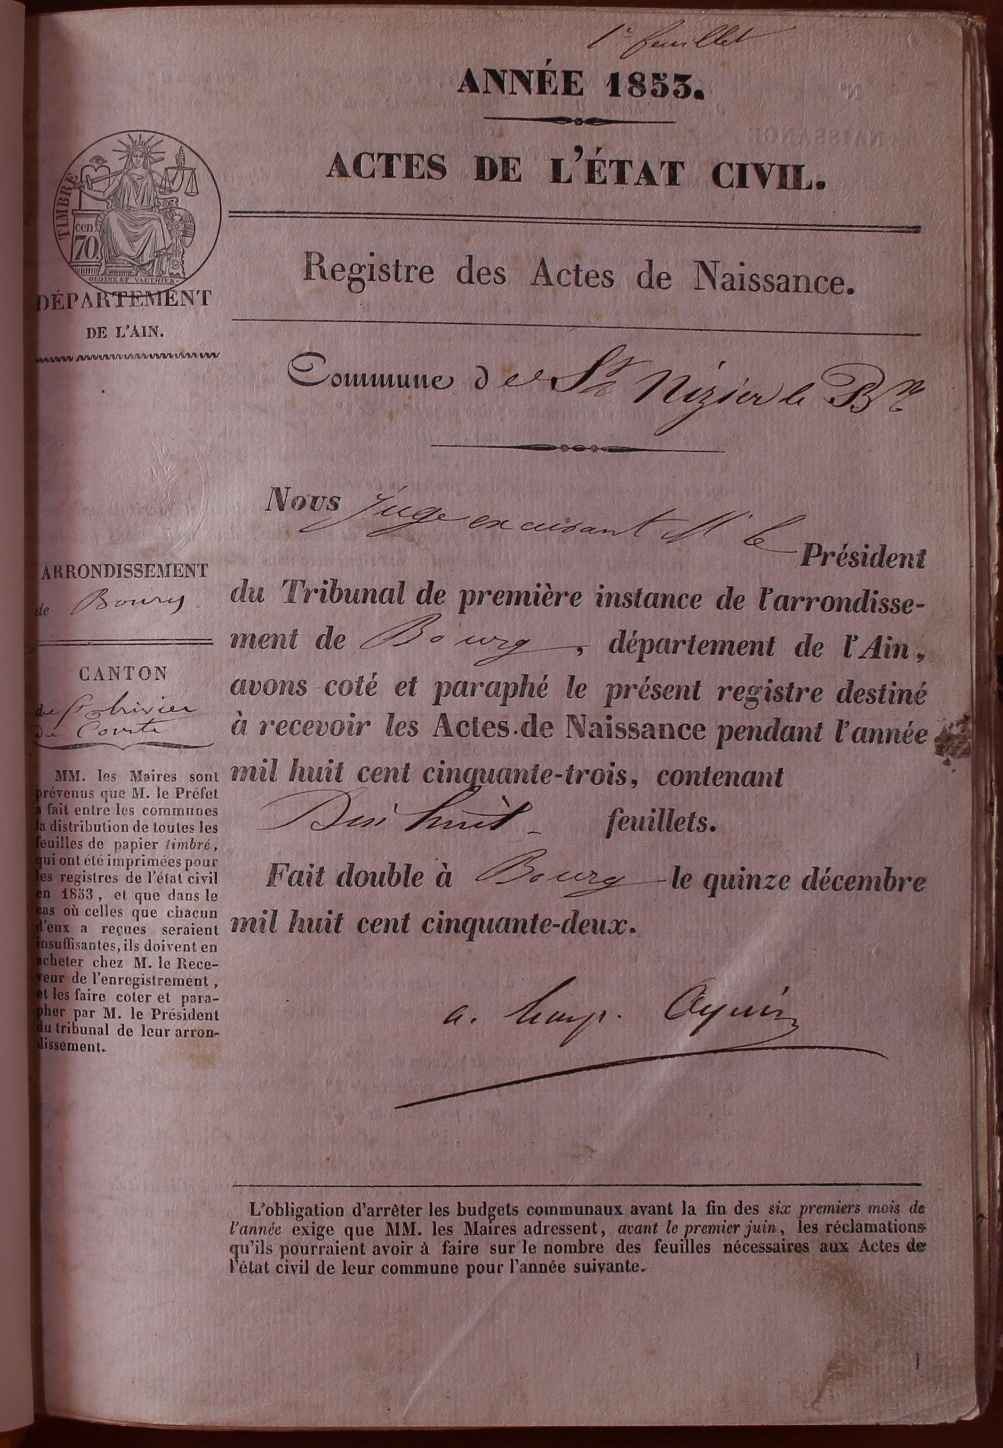 1er feuillet
ANNÉE 1853.
ACTES DE L'ÉTAT CIVIL.
Registre des Actes de Naissance.
Commune de St Nizier le Bt
TIMBRE
cen
70
DÉPARTEMENT
DE L'AIN.
ARRONDISSEMENT
de Bourg
CANTON
de St Trivier
de Courte
MM. les Maires sont
prévenus que M. le Préfet
a fait entre les communes
la distribution de toutes les
feuilles de papier timbré,
qui ont été imprimées pour
les registres de l'état civil
en 1853, et que dans le
cas où celles que chacun
d'eux a reçues seraient
insuffisantes, ils doivent en
acheter chez M. le Rece-
veur de l'enregistrement,
et les faire coter et para-
pher par M. le Président
du tribunal de leur arron-
dissement.
Nous Juge M. le Président
du Tribunal de première instance de l'arrondisse-
ment de Bourg, département de l'Ain,
avons coté et paraphé le présent registre destiné
à recevoir les Actes de Naissance pendant l'année
mil huit cent cinquante-trois, contenant
Dix huit feuillets.
Fait double à Bourg le quinze décembre
mil huit cent cinquante-deux.
L'obligation d'arrêter les budgets communaux avant la fin des six premiers mois de
l'année exige que MM. les Maires adressent, avant le premier juin, les réclamations
qu'ils pourraient avoir à faire sur le nombre des feuilles nécessaires aux Actes de
l'état civil de leur commune pour l'année suivante.
1